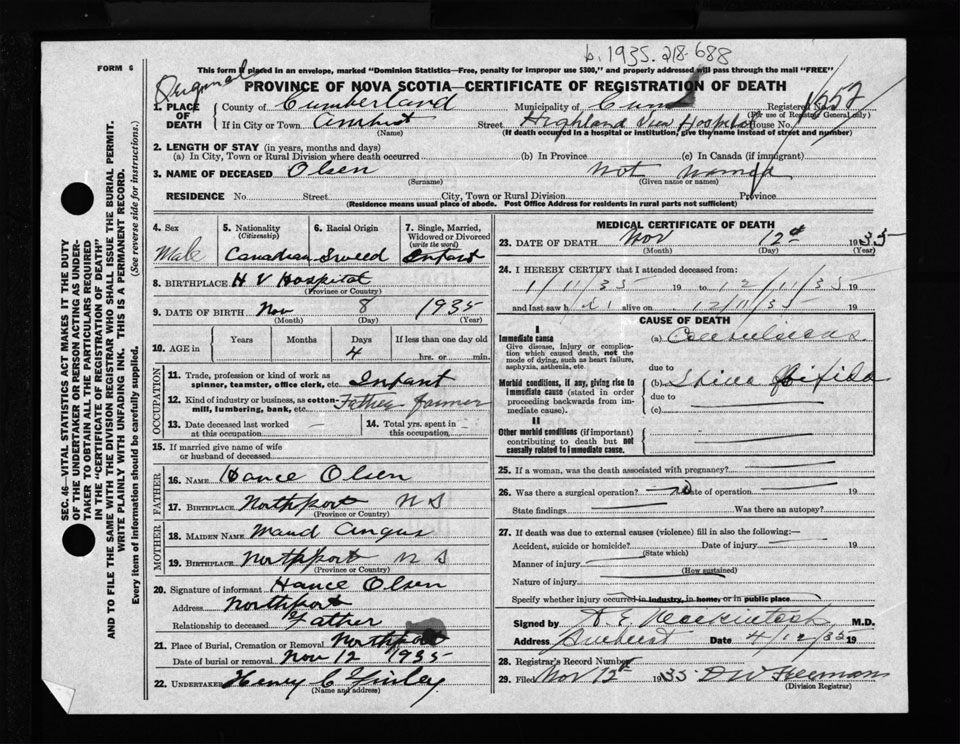 b. 1935. 218-688
FORM 6
This form if placed in an envelope, marked "Dominion Statistics—Free, penalty for improper use $300," and properly addressed will pass through the mail "FREE"
Original
PROVINCE OF NOVA SCOTIA—CERTIFICATE OF REGISTRATION OF DEATH
1. PLACE OF DEATH
County of Cumberland Municipality of Cum Registered No. 1552
(For use of Registrar General only)
If in City or Town Amherst Street Highland View Hospital House No.
(Name) (If death occurred in a hospital or institution, give the name instead of street and number)
2. LENGTH OF STAY (in years, months and days)
(a) In City, Town or Rural Division where death occurred (b) In Province (c) In Canada (if immigrant)
3. NAME OF DECEASED Olsen Not named
(Surname) (Given name or names)
RESIDENCE No. Street City, Town or Rural Division Province
(Residence means usual place of abode. Post Office Address for residents in rural parts not sufficient)
4. Sex Male
5. Nationality (Citizenship) Canadian
6. Racial Origin Sweed
7. Single, Married, Widowed or Divorced (write the word) Infant
8. BIRTHPLACE H V Hospital
(Province or Country)
9. DATE OF BIRTH Nov 8 1935
(Month) (Day) (Year)
10. AGE in Years Months Days 4 If less than one day old hrs. or min.
OCCUPATION
11. Trade, profession or kind of work as spinner, teamster, office clerk, etc. Infant
12. Kind of industry or business, as cotton-mill, lumbering, bank, etc. Father farmer
13. Date deceased last worked at this occupation —
14. Total yrs. spent in this occupation —
15. If married give name of wife or husband of deceased
FATHER
16. NAME Hance Olsen
17. BIRTHPLACE Northport N S
(Province or Country)
MOTHER
18. MAIDEN NAME Maud Angus
19. BIRTHPLACE Northport N S
(Province or Country)
20. Signature of informant Hance Olsen
Address Northport
Relationship to deceased Father
21. Place of Burial, Cremation or Removal Northport
Date of burial or removal Nov 12 1935
22. UNDERTAKER Henry C
(Name and address)
MEDICAL CERTIFICATE OF DEATH
23. DATE OF DEATH Nov 12th 1935
(Month) (Day) (Year)
24. I HEREBY CERTIFY that I attended deceased from:
1/11/35 19 to 12/11/35 19
and last saw h alive on 12/11/35 19
CAUSE OF DEATH
I
Immediate cause
Give disease, injury or complication which caused death, not the mode of dying, such as heart failure, asphyxia, asthenia, etc.
(a) Convulsions.
due to
Morbid conditions, if any, giving rise to immediate cause (stated in order proceeding backwards from immediate cause).
(b) Spina Bifida
due to
(c)
II
Other morbid conditions (if important) contributing to death but not causally related to immediate cause.
25. If a woman, was the death associated with pregnancy?
26. Was there a surgical operation? no Date of operation 19
State findings Was there an autopsy?
27. If death was due to external causes (violence) fill in also the following:—
Accident, suicide or homicide? Date of injury 19
(State which)
Manner of injury
(How sustained)
Nature of injury
Specify whether injury occurred in industry, in home, or in public place
Signed by A E Mackintosh M.D.
Address Amherst Date 4/12/35 19
28. Registrar's Record Number
29. Filed Nov 12th 1935 D W Freeman
(Division Registrar)
SEC. 46—VITAL STATISTICS ACT MAKES IT THE DUTY
OF THE UNDERTAKER OR PERSON ACTING AS UNDER-
TAKER TO OBTAIN ALL THE PARTICULARS REQUIRED
IN THE "CERTIFICATE OF REGISTRATION OF DEATH"
AND TO FILE THE SAME WITH THE DIVISION REGISTRAR WHO SHALL ISSUE THE BURIAL PERMIT.
WRITE PLAINLY WITH UNFADING INK. THIS IS A PERMANENT RECORD.
Every item of information should be carefully supplied. (See reverse side for instructions.)